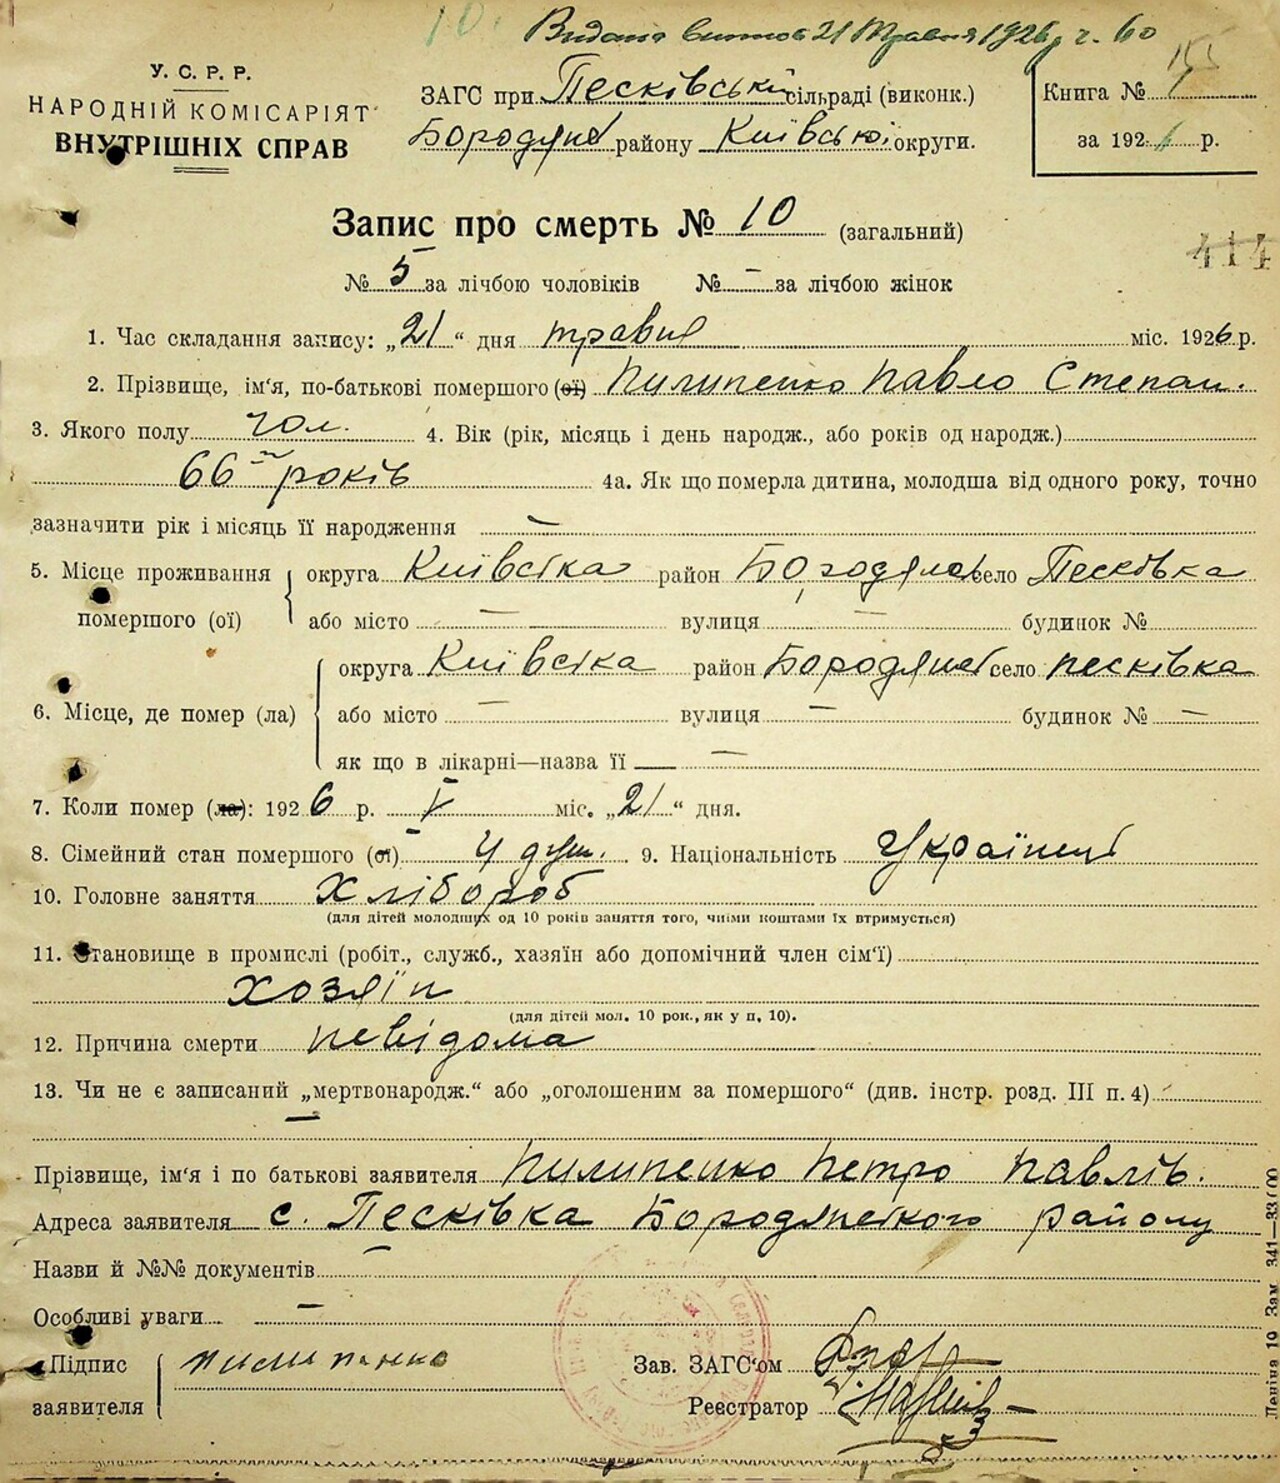 10. Видана виттов 21 Травня 1926 р. ч. 60
У. С. Р. Р.
НАРОДНІЙ КОМІСАРІЯТ
ВНУТРІШНІХ СПРАВ
ЗАГС при Песківські сільраді (виконк.)
Бородянс району Київської округи.
155
Книга № 1
за 1926 р.
Запис про смерть № 10 (загальний)
414
№ 5 за лічбою чоловіків № — за лічбою жінок
1. Час складання запису: „21“ дня травня міс. 1926 р.
2. Прізвище, ім‘я, по-батькові помершого (ої) Пилипенко Павло Степан.
3. Якого полу чол. 4. Вік (рік, місяць і день народж., або років од народж.)
66 років 4а. Як що померла дитина, молодша від одного року, точно
зазначити рік і місяць її народження —
5. Місце проживання помершого (ої) округа Київсіка район Бородянс село Песківка
або місто — вулиця — будинок №
6. Місце, де помер (ла) округа Київсіка район Бородянс село Песківка
або місто — вулиця — будинок № —
як що в лікарні—назва її —
7. Коли помер (ла): 1926 р. V міс. „21“ дня.
8. Сімейний стан помершого (ої) 4 душ. 9. Національність Українец
10. Головне заняття Хлібороб
(для дітей молодших од 10 років заняття того, чиїми коштами їх втримується)
11. Становище в промислі (робіт., служб., хазяїн або допомічний член сім‘ї)
хозяїн
(для дітей мол. 10 рок., як у п. 10).
12. Причина смерти невідома
13. Чи не є записаний „мертвонародж.“ або „оголошеним за помершого“ (див. інстр. розд. III п. 4)
—
Прізвище, ім‘я і по батькові заявителя Пилипенко Петро Павлів.
Адреса заявителя с. Песківка Бородянського району
Назви й №№ документів —
Особливі уваги —
Підпис заявителя пилипенко
Зав. ЗАГС‘ом
Реєстратор